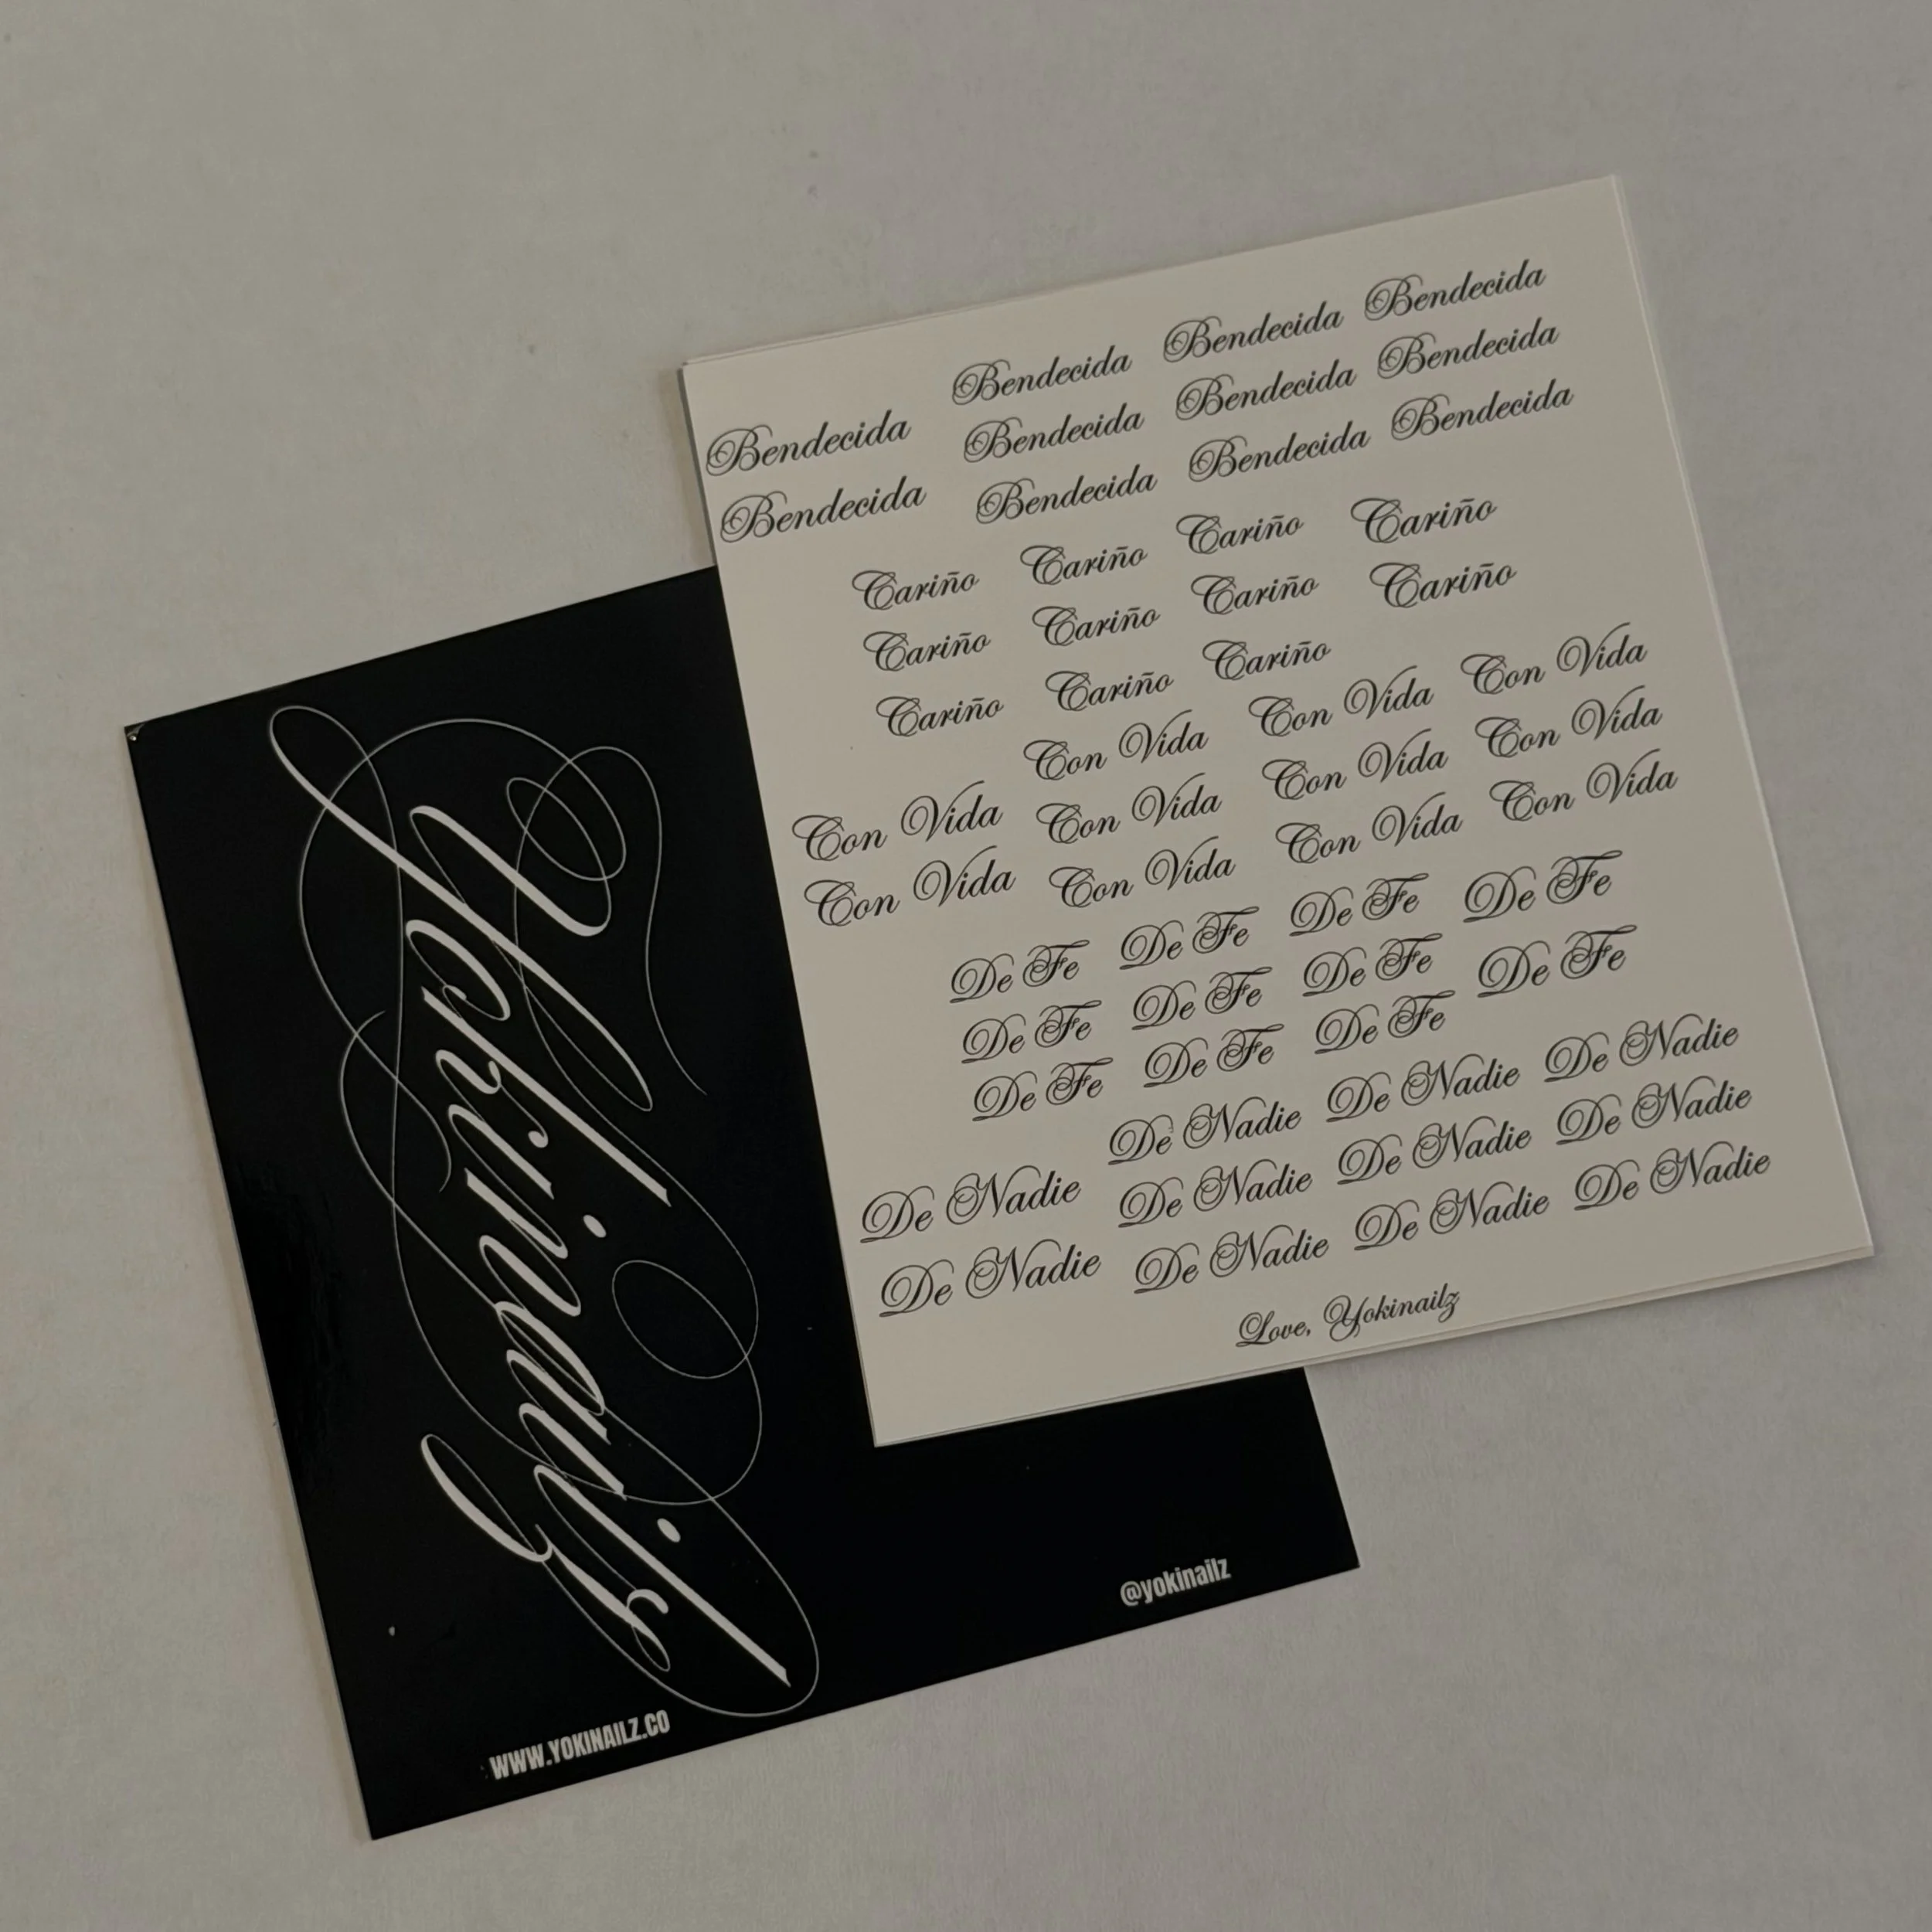 Bendecida Bendecida Bendecida Bendecida
Bendecida Bendecida Bendecida Bendecida
Bendecida Bendecida Bendecida
Cariño Cariño Cariño Cariño
Cariño Cariño Cariño Cariño
Cariño Cariño Cariño
Con Vida Con Vida Con Vida Con Vida
Con Vida Con Vida Con Vida Con Vida
Con Vida Con Vida Con Vida
De Fe De Fe De Fe De Fe
De Fe De Fe De Fe De Fe
De Fe De Fe De Fe
De Nadie De Nadie De Nadie De Nadie
De Nadie De Nadie De Nadie De Nadie
De Nadie De Nadie De Nadie
Love, Yokinailz
Yokinailz
WWW.YOKINAILZ.CO
@yokinailz